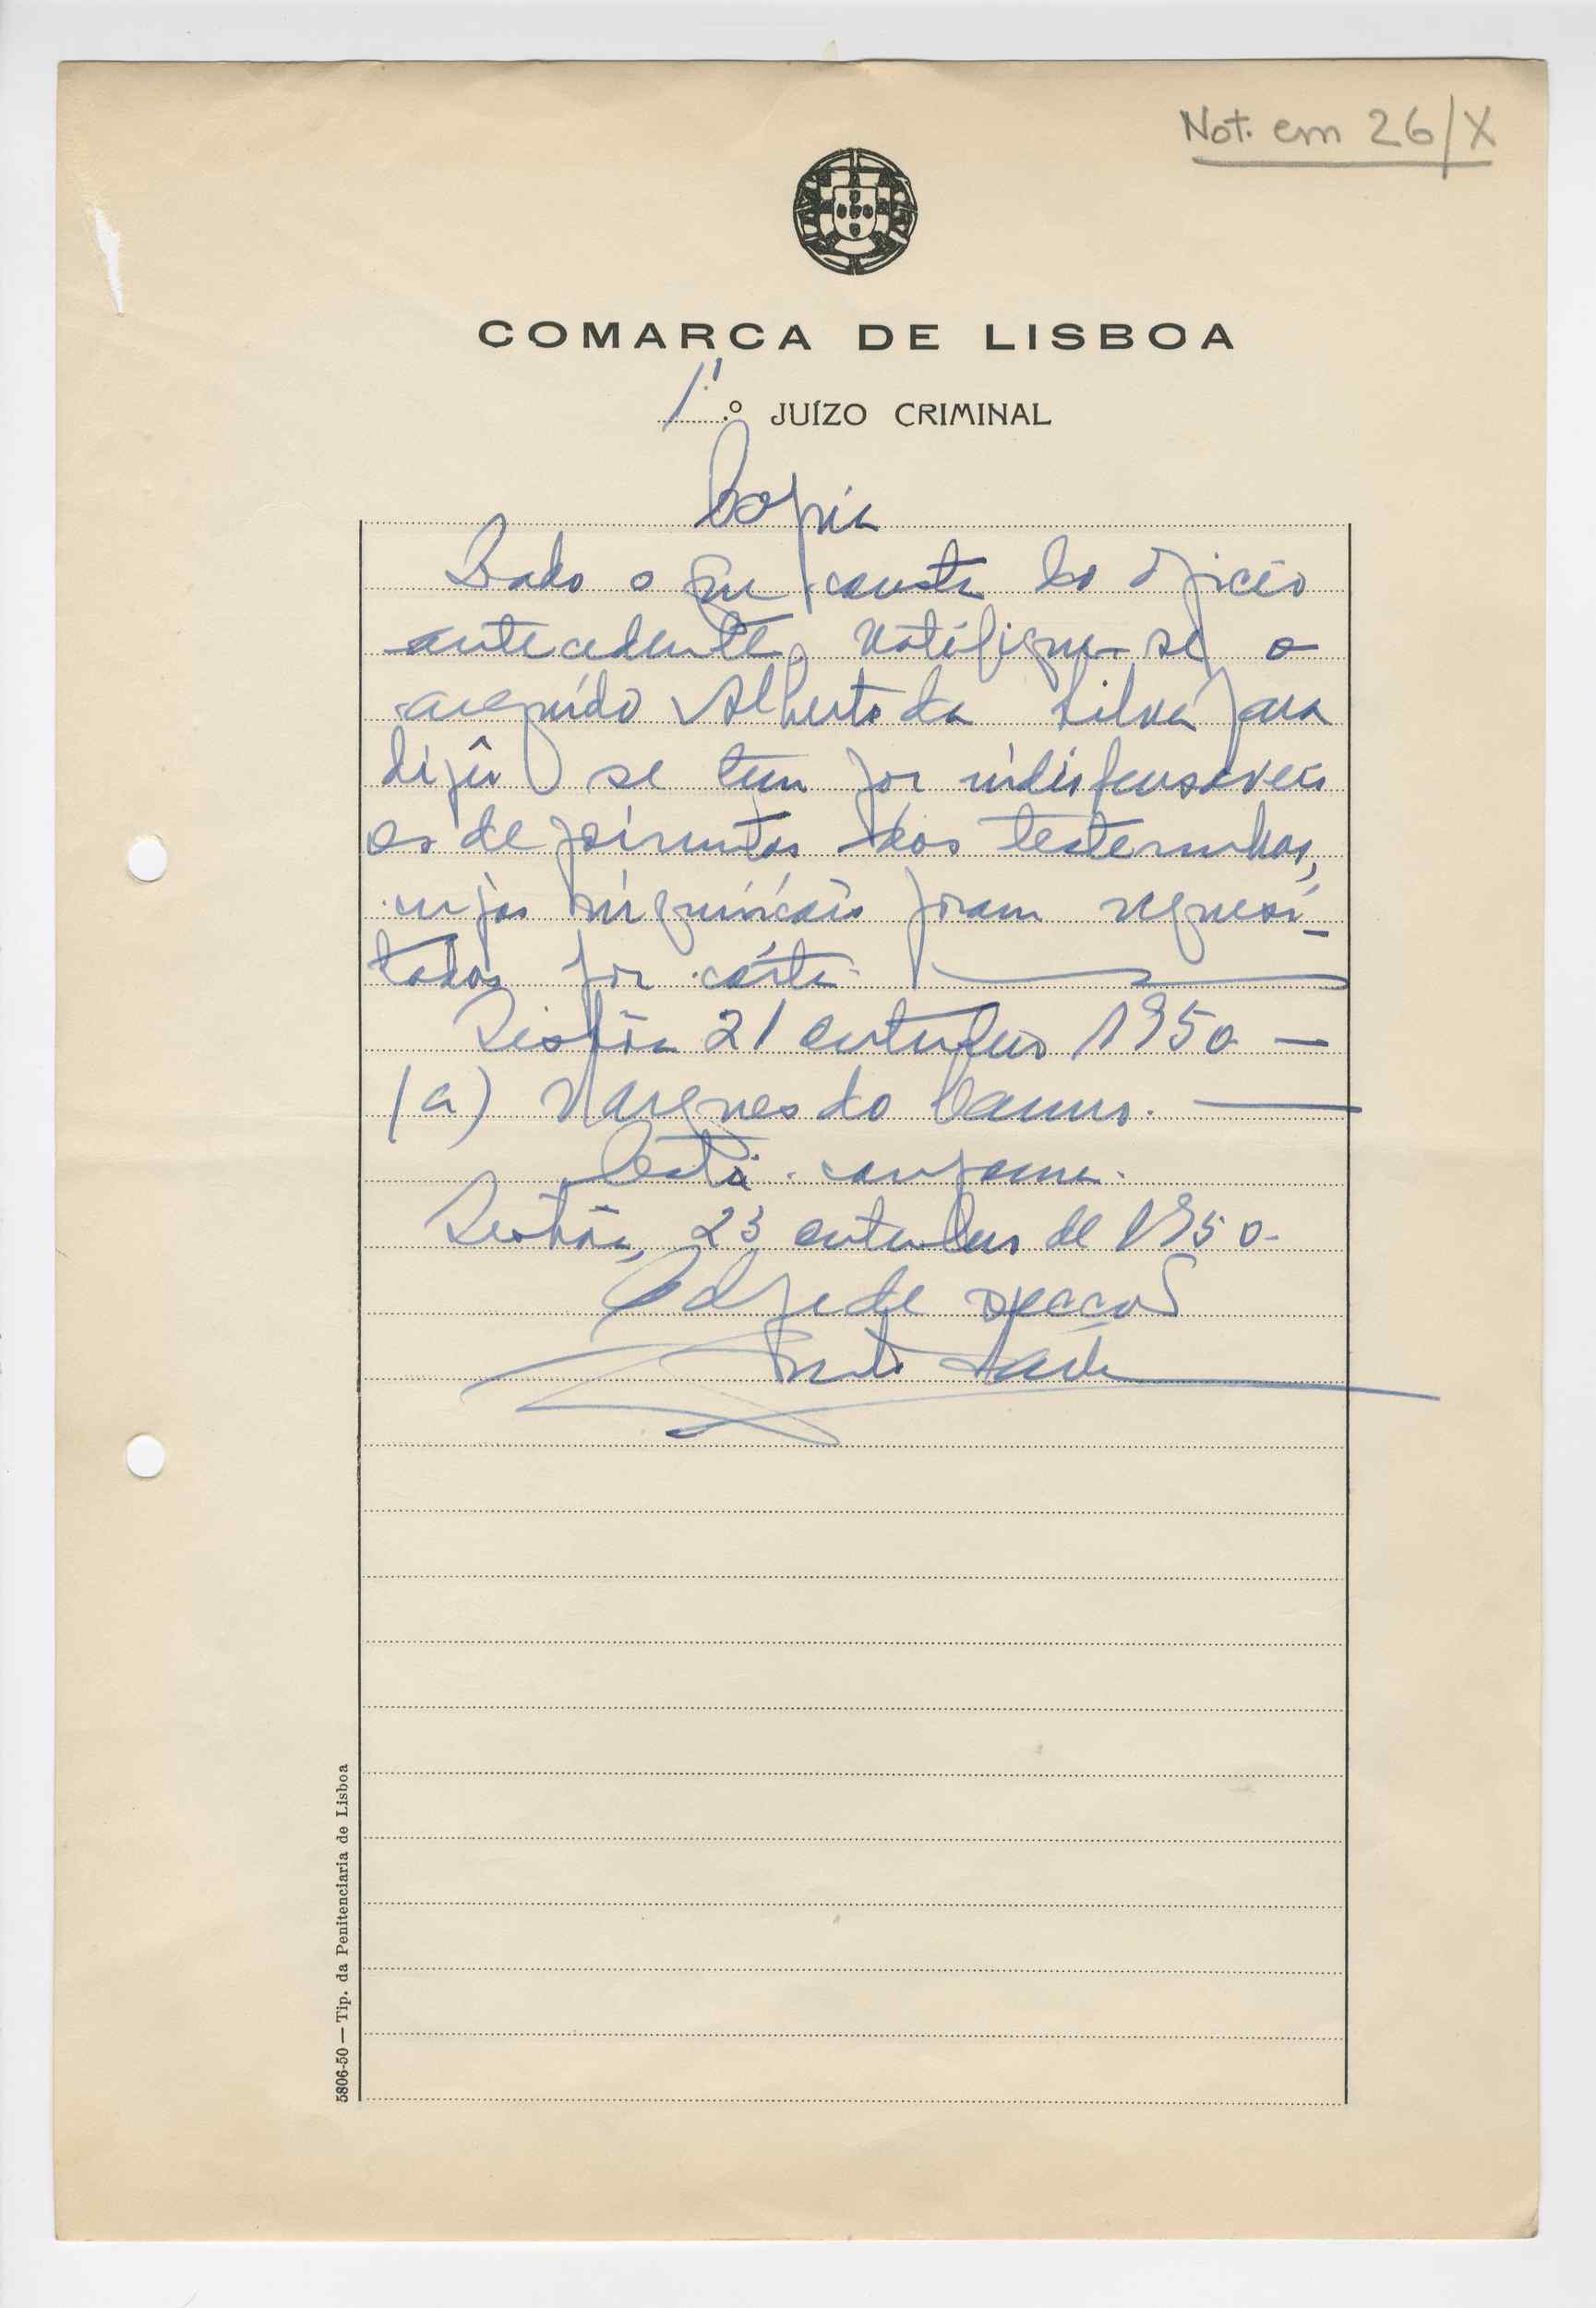 Not. em 26/X
COMARCA DE LISBOA
1.º JUÍZO CRIMINAL
Copia
Dado o que consta do oficio
antecedente, notifique-se o
arguido Alberto da Silva para
dizêr se tem por indispensaveis
os depoimentos das testemunhas,
cujas inquirições foram requesi-
tadas por carta.
Lisbôa 21 outubro 1950 —
(a) Marques do Carmo. —
Está conforme.
Lisbôa, 23 outubro de 1950.
O chefe de secção
5806-50 — Tip. da Penitenciaria de Lisboa